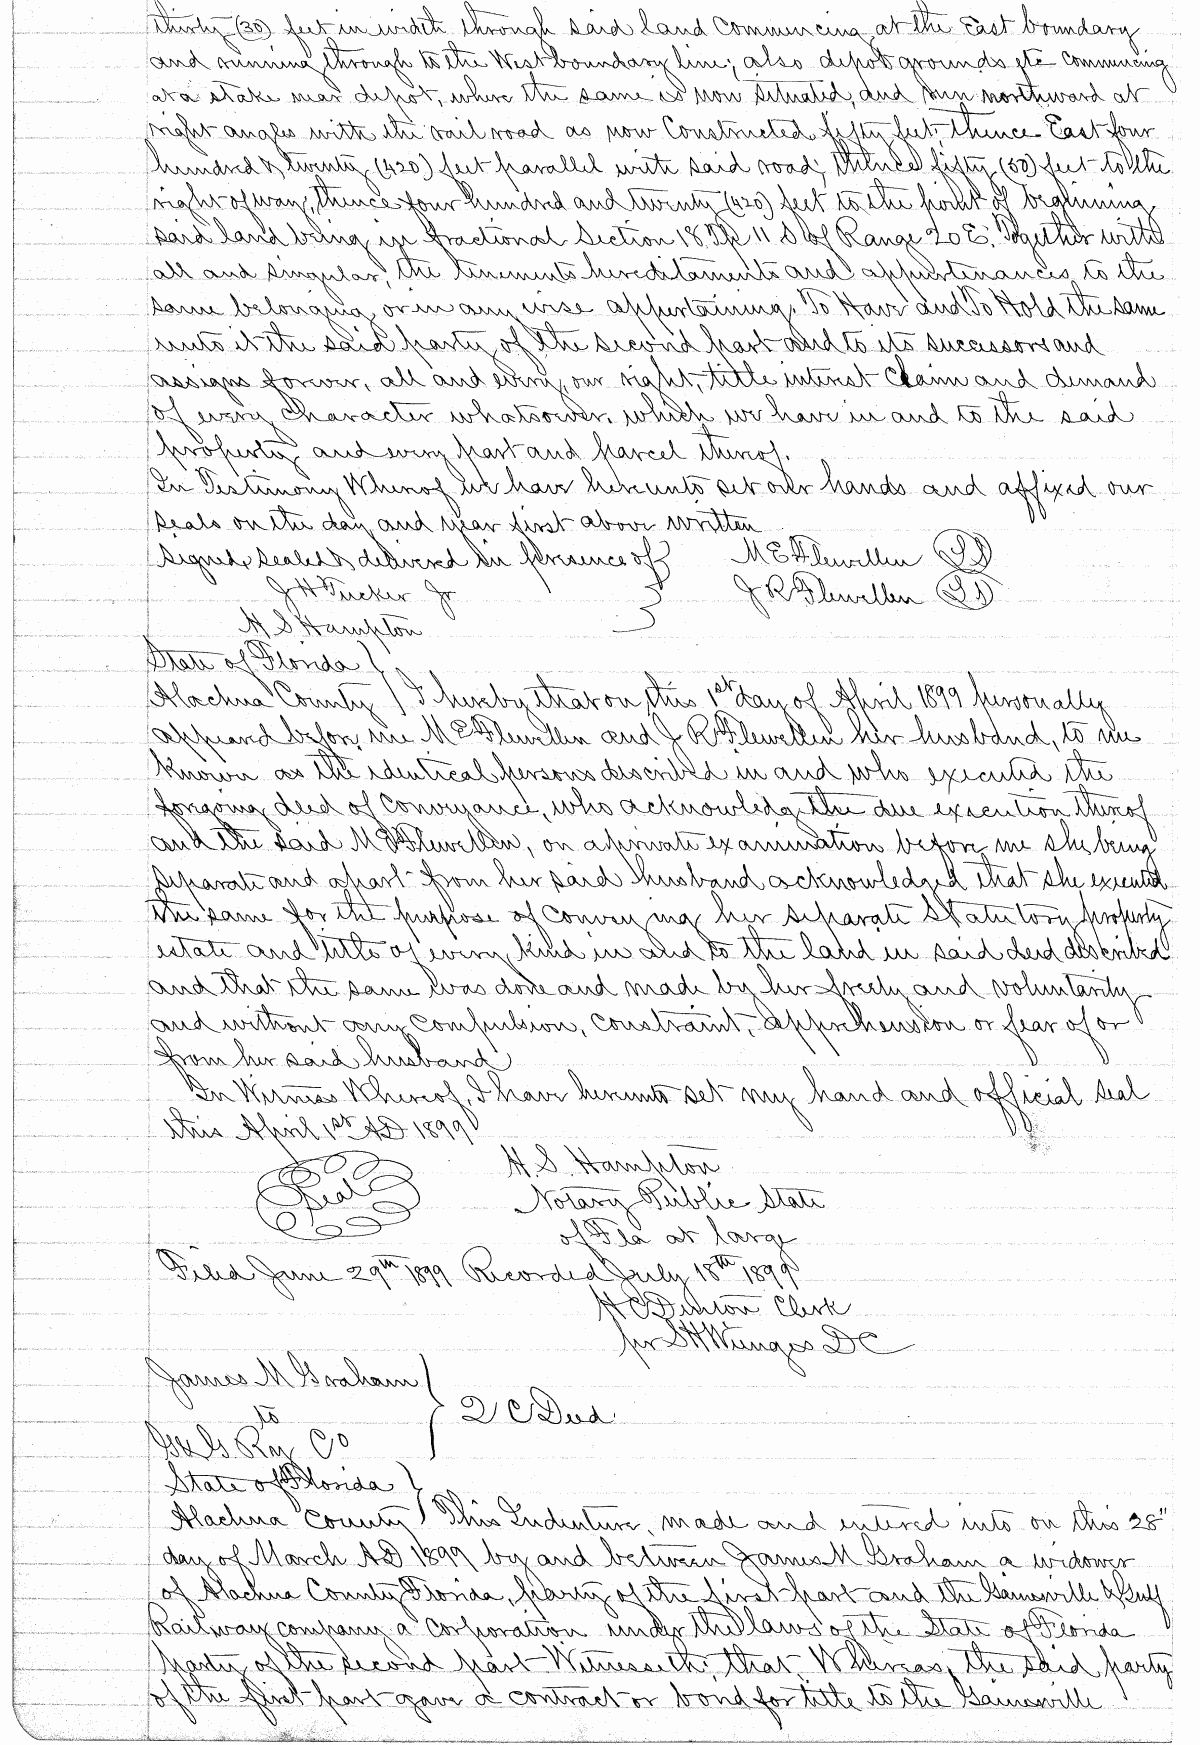 thirty (30) feet in width through said land Commencing at the East boundary
and running through to the West boundary line; also depot grounds etc commencing
at a stake near depot, where the same is now situated, and run northward at
right angles with the rail road as now Constructed fifty feet, thence East four
hundred & twenty (420) feet parallel with said road; thence fifty (50) feet to the
right of way, thence four hundred and twenty (420) feet to the point of beginning
said land being in fractional Section 18 Tp 11 S of Range 20 E. Together with
all and singular, the tenements hereditaments and appurtenances to the
same belonging or in any wise appertaining. To Have and To Hold the same
unto it the said party of the second part and to its successors and
assigns forever, all and every our right, title interest Claim and demand
of every character whatsoever. which we have in and to the said
property and every part and parcel thereof.
In Testimony Whereof we have hereunto set our hands and affixed our
seals on the day and year first above written
signed, sealed & delivered in presence of } M E Flewellen (LS)
J H Tucker Jr } J R Flewellen (LS)
H. S. Hampton
State of Florida }
Alachua County } I hereby that on this 1st day of April 1899 personally
appeared before me M E Flewellen and J R Flewellen her husband, to me
known as the identical persons described in and who executed the
forgoing deed of conveyance, who acknowledge the due execution thereof
and the said M E Flewellen, on a private examination before me she being
separate and apart from her said husband acknowledged that she executed
the same for the purpose of conveying her separate Statutory property
estate and title of every kind in and to the land in said deed described
and that the same was done and made by her freely and voluntarily
and without any compulsion, constraint, apprehension or fear of or
from her said husband
In Witness Whereof, I have hereunto set my hand and official seal
this April 1st AD 1899
Seal H. S. Hampton
Notary Public State
of Fla at large
Filed June 29th 1899 Recorded July 18th 1899
H C Denton Clerk
per S H Wienges DC
James M Graham }
to } Q C Deed
G & G Ry Co
State of Florida }
Alachua County } This Indenture, made and entered into on this 28"
day of March AD 1899 by and between James M Graham a widower
of Alachua County Florida, party of the first part and the Gainesville & Gulf
Railway company a corporation under the laws of the State of Florida
party of the second part Witnesseth, that, Whereas, the said party
of the first part gave a contract or bond for title to the Gainesville